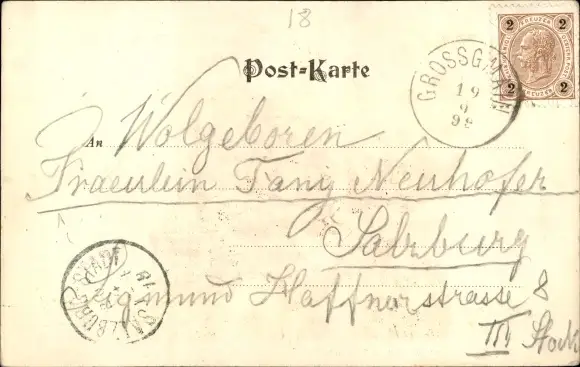 18
2 KREUZER 2
2 2
Post-Karte
GROSSGMAIN
19
9
98
An Wolgeboren
Fraeulein Fany Neuhofer
Salzburg
Sigmund Haffnerstrasse 8
III Stock
SALZBURG STADT
19